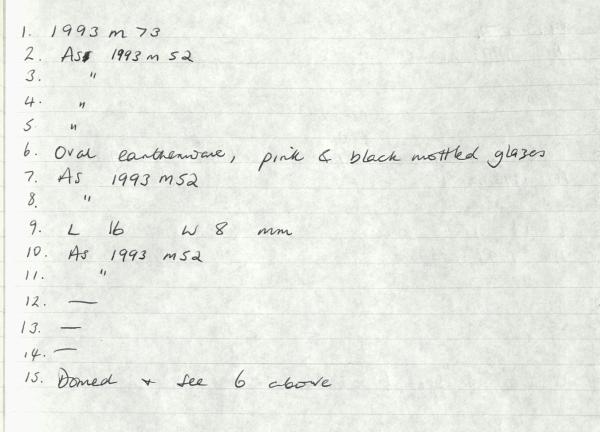 1. 1993 m 73
2. As 1993 m 52
3. "
4. "
5 "
6. Oval earthenware, pink & black mottled glazes
7. As 1993 m52
8. "
9. L 16 W 8 mm
10. As 1993 m52
11. "
12. —
13. —
14. —
15. Domed + see 6 above